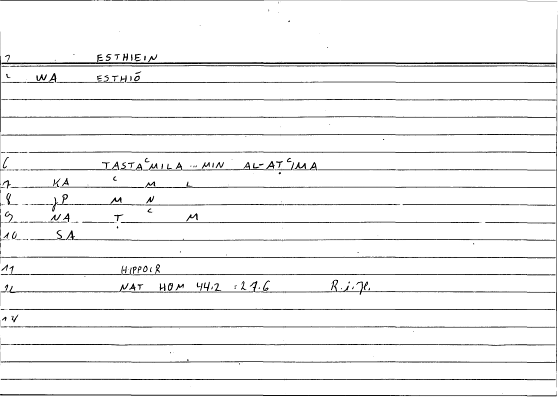 ESTHIEIN
WA ESTHIŌ
6 TASTAʿMILA - MIN AL-AṬʿIMA
7 KA ʿ M L
8 JP M N
9 NA Ṭ ʿ M
10 SA
11 HIPPOCR
12 NAT HOM 44.2 = 27.6 R.i.
14